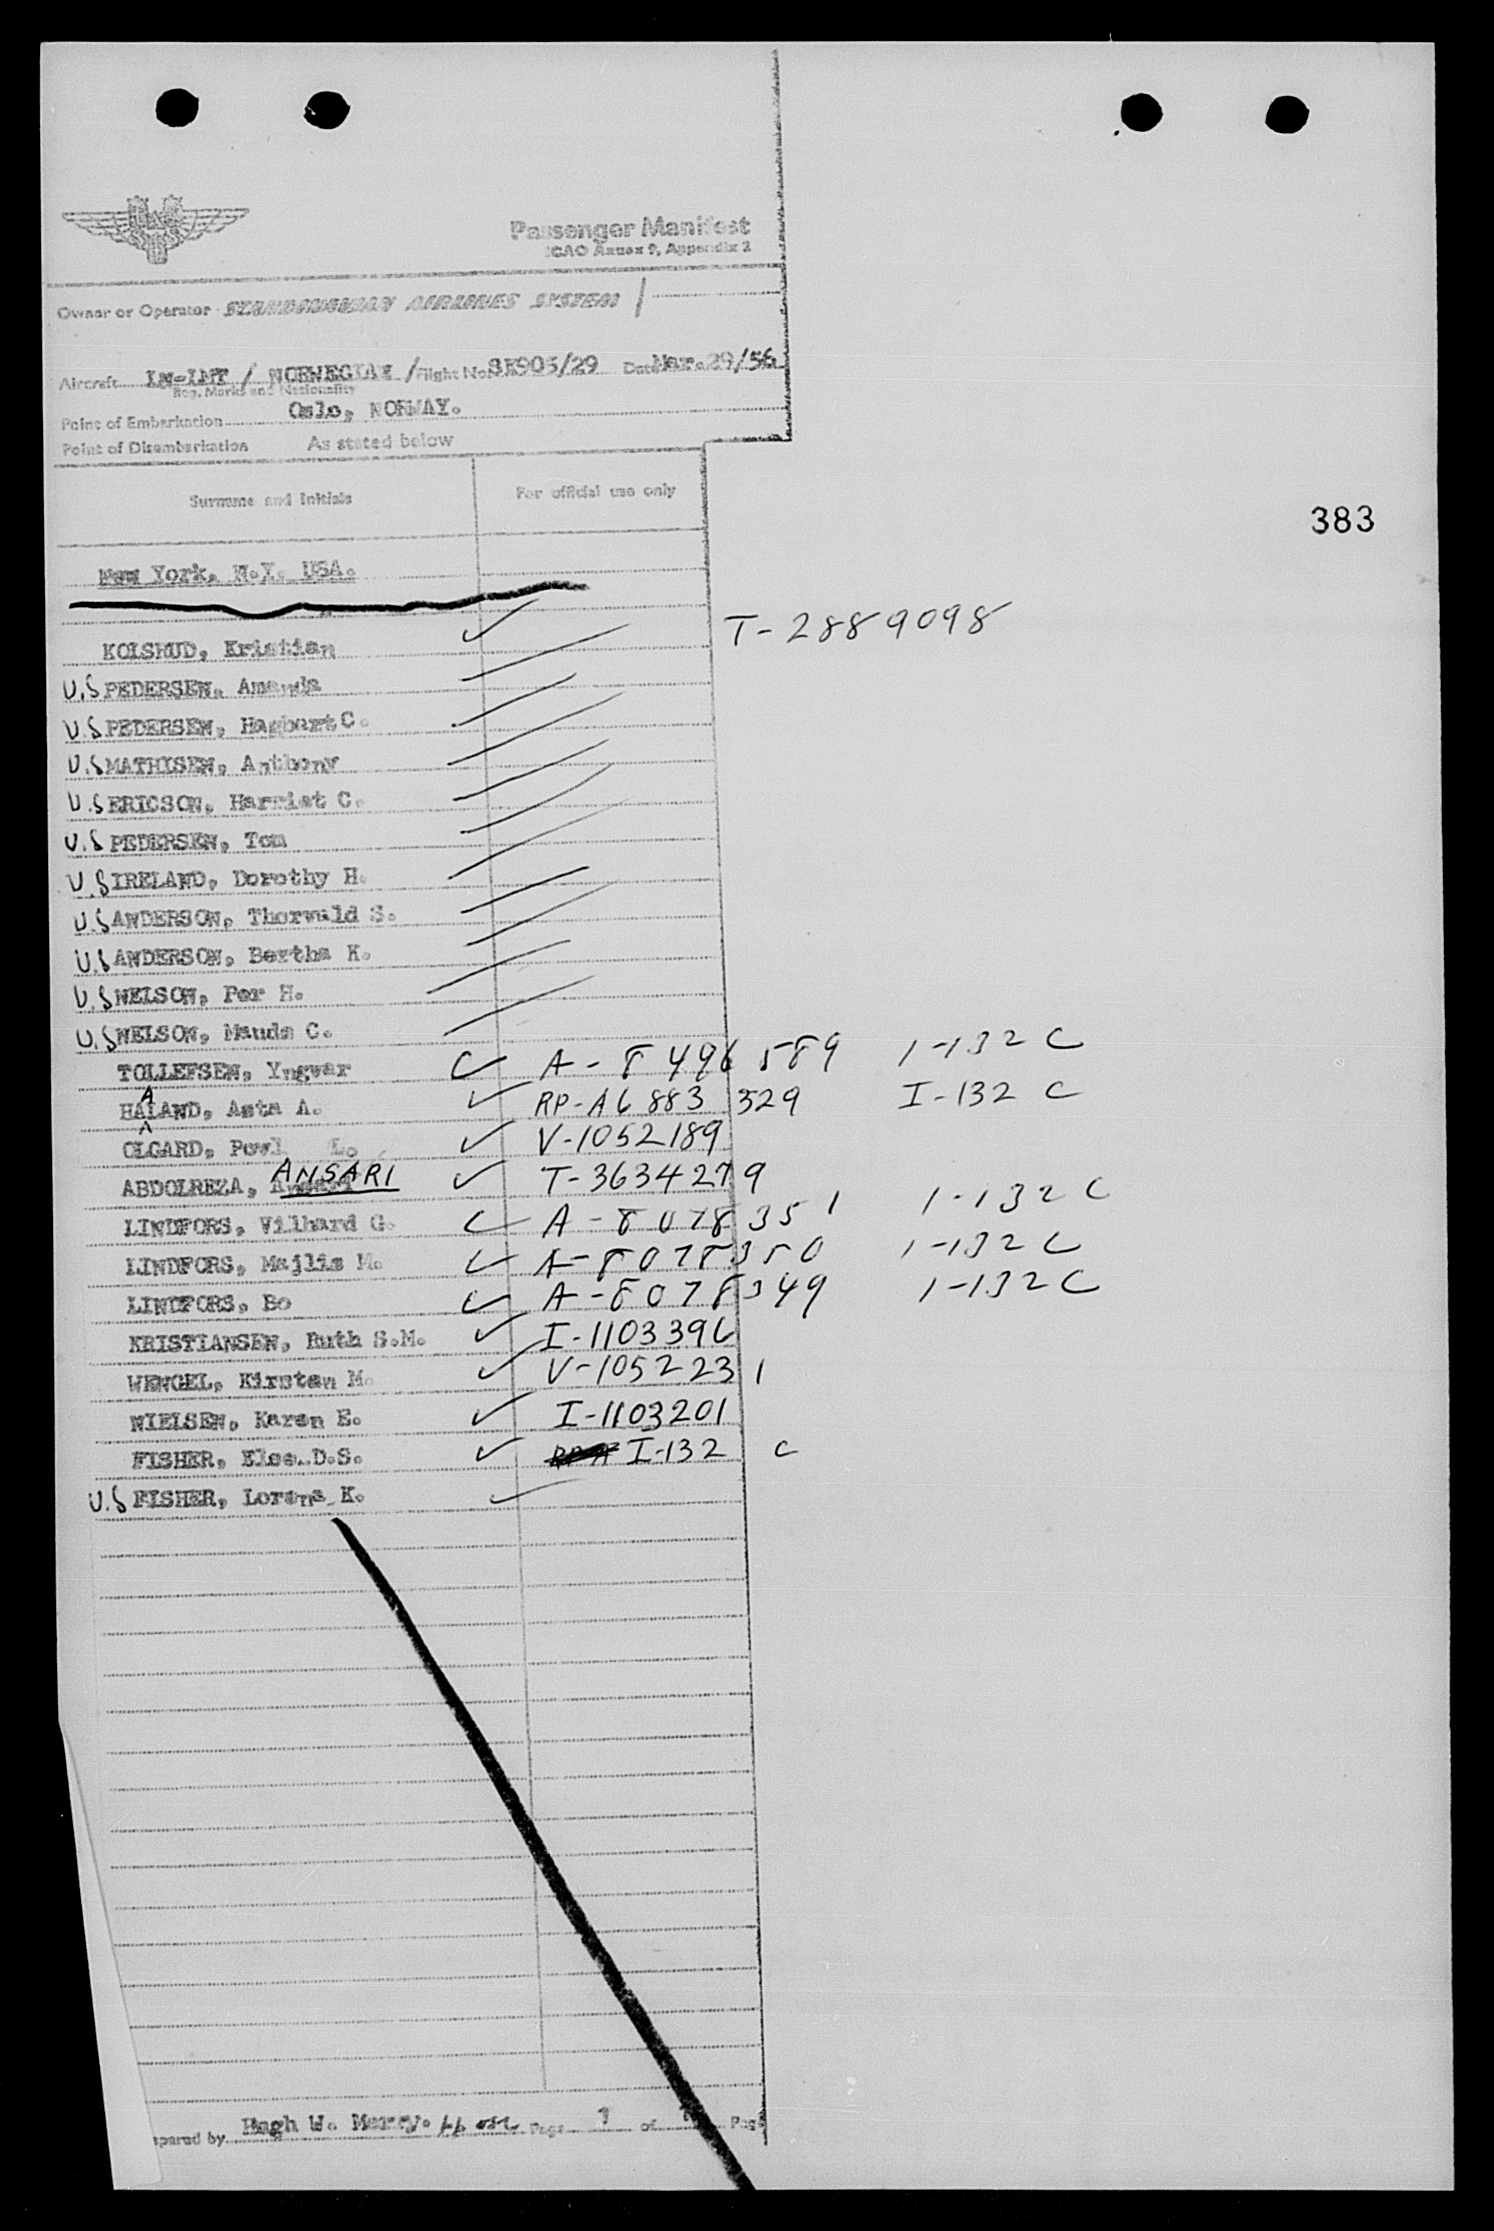 Passenger Manifest
ICAO Annex 9, Appendix 2
Owner or Operator SCANDINAVIAN AIRLINES SYSTEM /
Aircraft / NORWEGIAN / Flight No. Date Mar. 29/56
Reg. Marks and Nationality
Point of Embarkation Oslo, NORWAY.
Point of Disembarkation As stated below
Surname and Initials For official use only
383
New York, N.Y. USA.
KOLSRUD, Kristian T-2889098
U.S PEDERSEN, Amanda
U.S PEDERSEN, Hagbart C.
U.S MATHISEN, Anthony
U.S ERICSON, Harriet C.
U.S PEDERSEN, Tom
U.S IRELAND, Dorothy H.
U.S ANDERSON, Thorvald S.
U.S ANDERSON, Bertha K.
U.S NELSON, Per H.
U.S NELSON, Maude C.
TOLLEFSEN, Yngvar A-8496589 1-132 C
A
HALAND, Asta A. RP-A6 883 329 I-132 C
OLGARD, Powl L. V-1052189
ABDOLREZA, ANSARI T-3634279
LINDFORS, Vilhard G. A-8078351 1-132 C
LINDFORS, Majlis M. A-8078350 1-132 C
LINDFORS, Bo A-8078349 1-132 C
KRISTIANSEN, Ruth S.M. I-1103396
WENGEL, Kirsten M. V-1052231
NIELSEN, Karen E. I-1103201
FISHER, Else D.S. I-132 C
U.S FISHER, Lorena K.
epared by Hugh W. Page 1 of Page